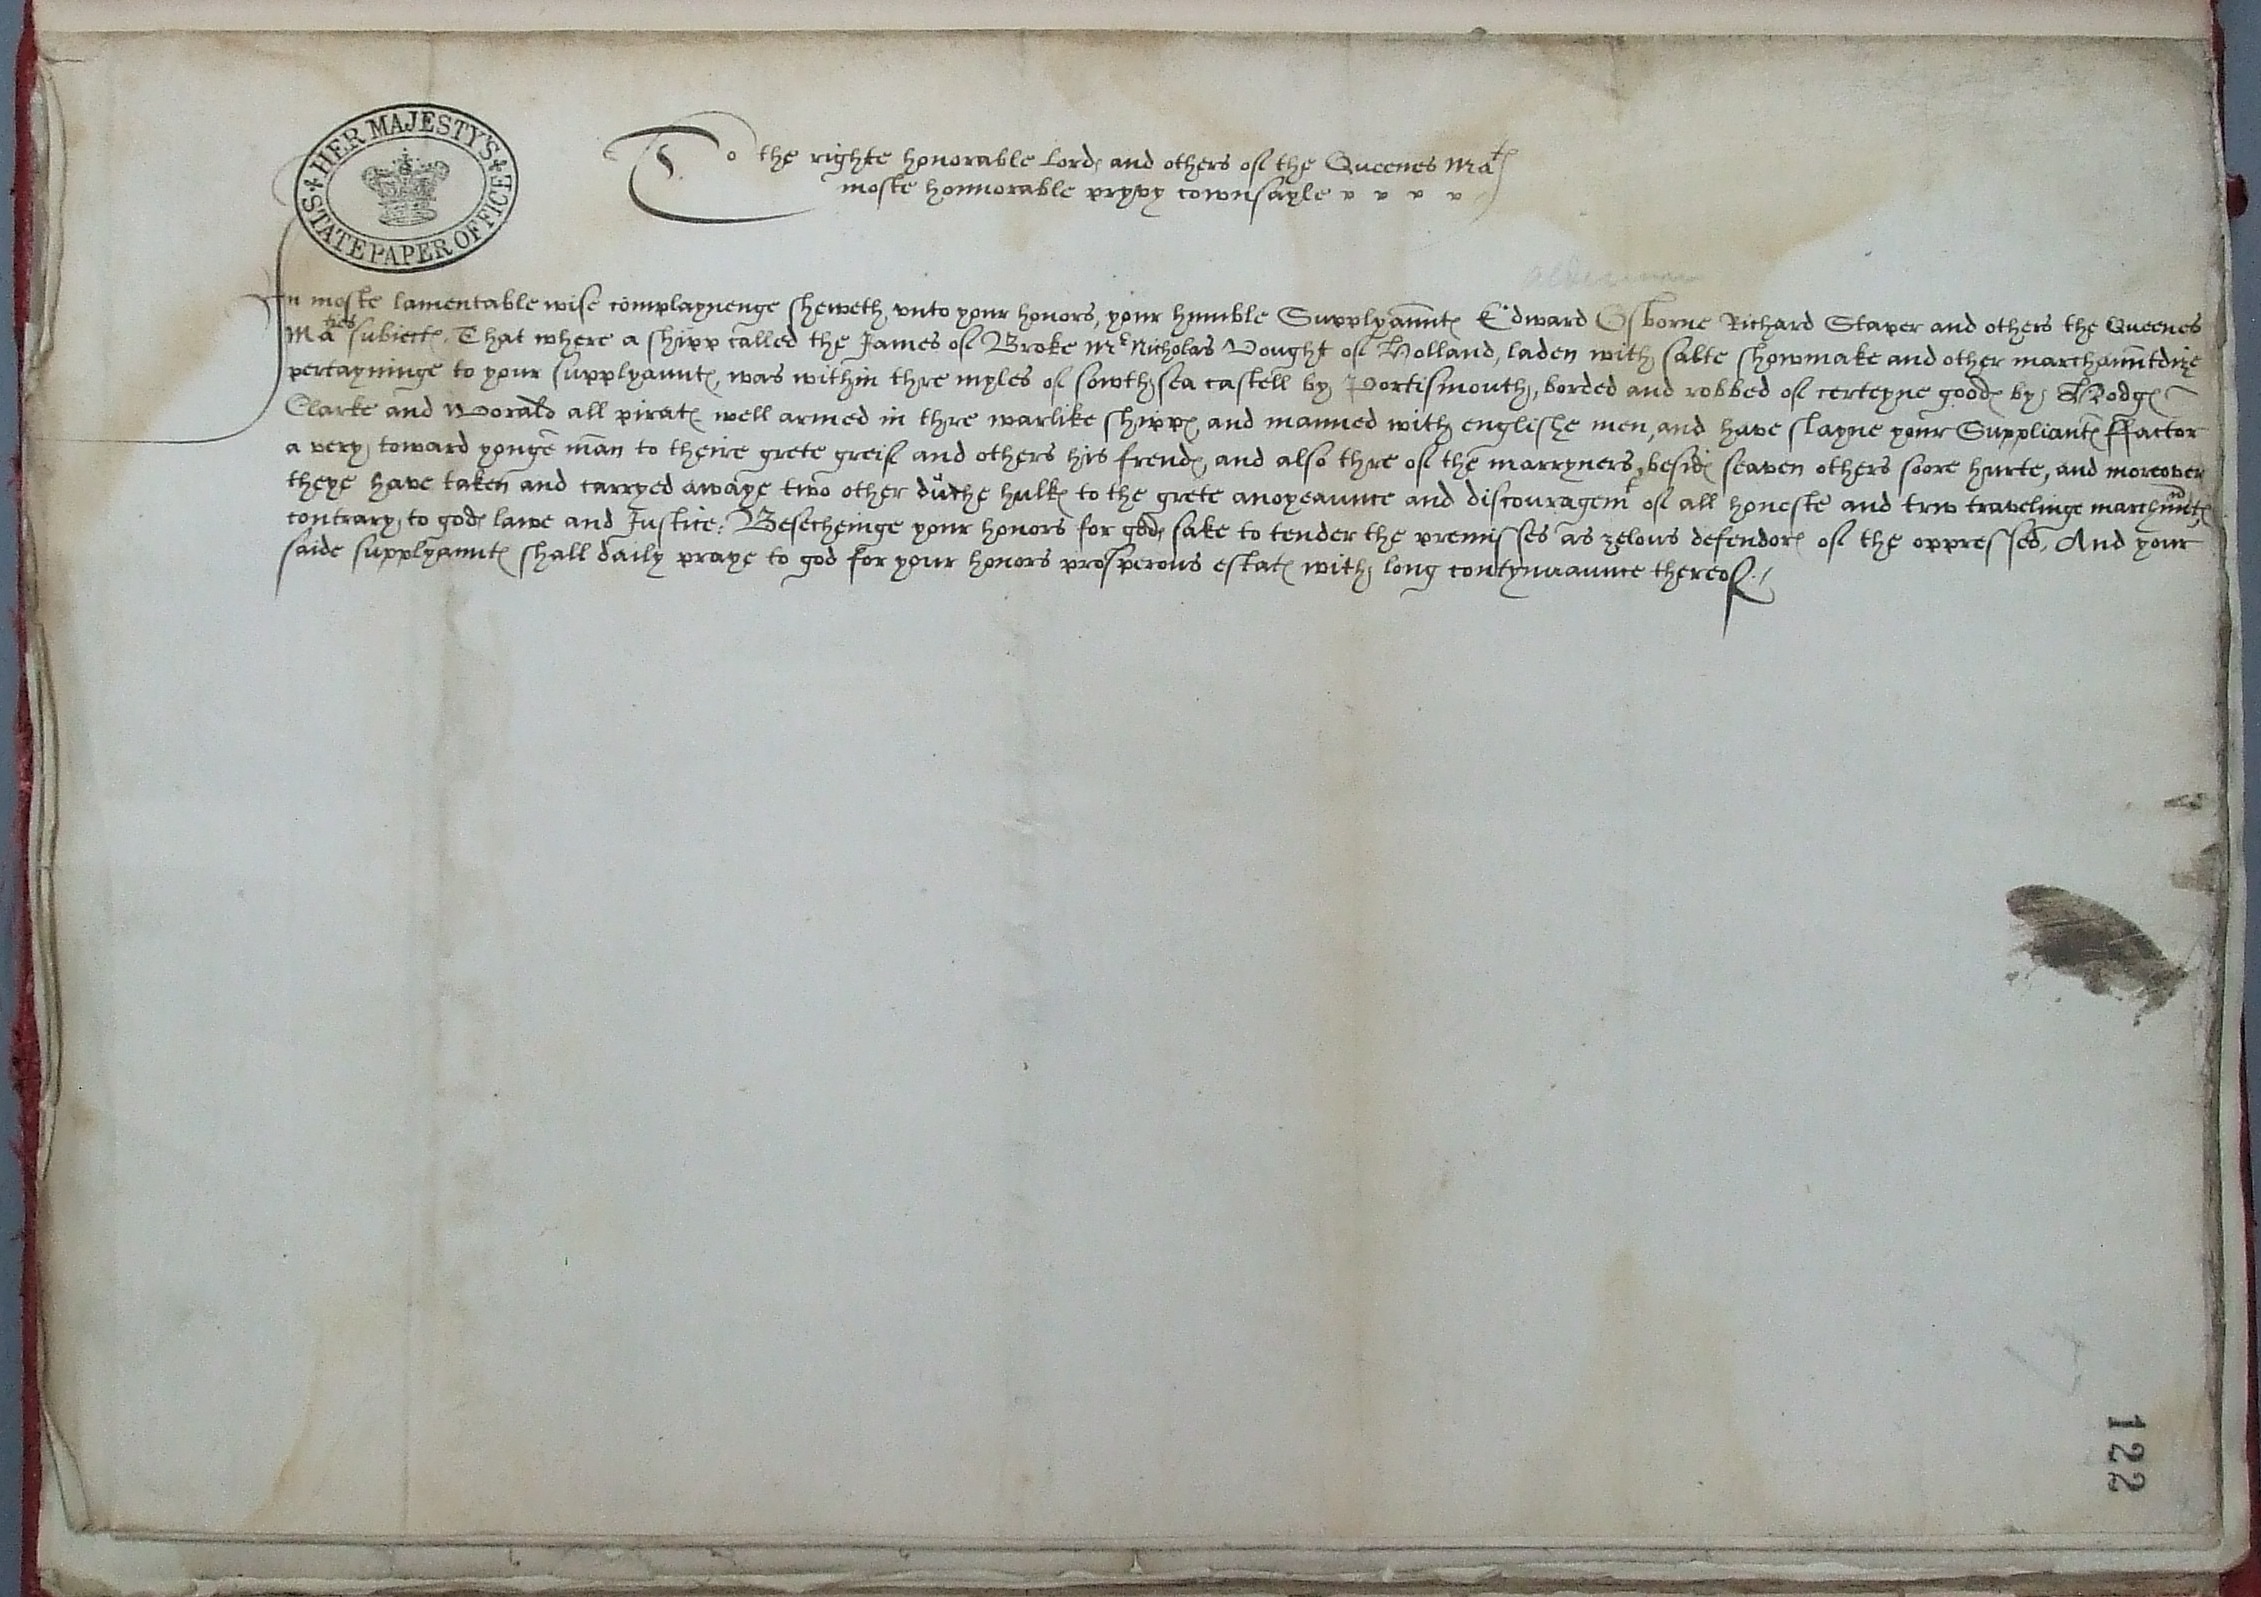 HER MAJESTY'S
STATE PAPER OFFICE
To the righte honorable Lordes and others of the Queenes Maties
moste honnorable pryvy cownsayle
In moste lamentable wise complaynenge sheweth vnto your honors, your humble Supplyauntes Edward Osborne Richard Staper and others the Queenes
Maties subiectes. That where a shipp called the James of Broke Mr Nicholas Vought of Holland, laden with salte showmake and other marchauntdize
pertayninge to your supplyauntes, was within thre myles of sowthsea castell by Portismouth, borded and robbed of certeyne goodes by
Clarke and all pirates well armed in thre warlike shippes and manned with englishe men, and have slayne your Suppliantes ffactor
a very toward yonge man to theire grete greif and others his frendes, and also thre of the marryners, besides seaven others soore hurte, and moreover
theye have taken and carryed awaye two other duche hulkes to the grete anoyeaunce and discouragemt of all honeste and trw travelinge marchauntes
contrary to godes lawe and Justice: Besecheinge your honors for godes sake to tender the premisses as zelous defendores of the oppressed, And your
saide supplyauntes shall daily praye to god for your honors prosperous estates with long contynuaunce thereof./
122